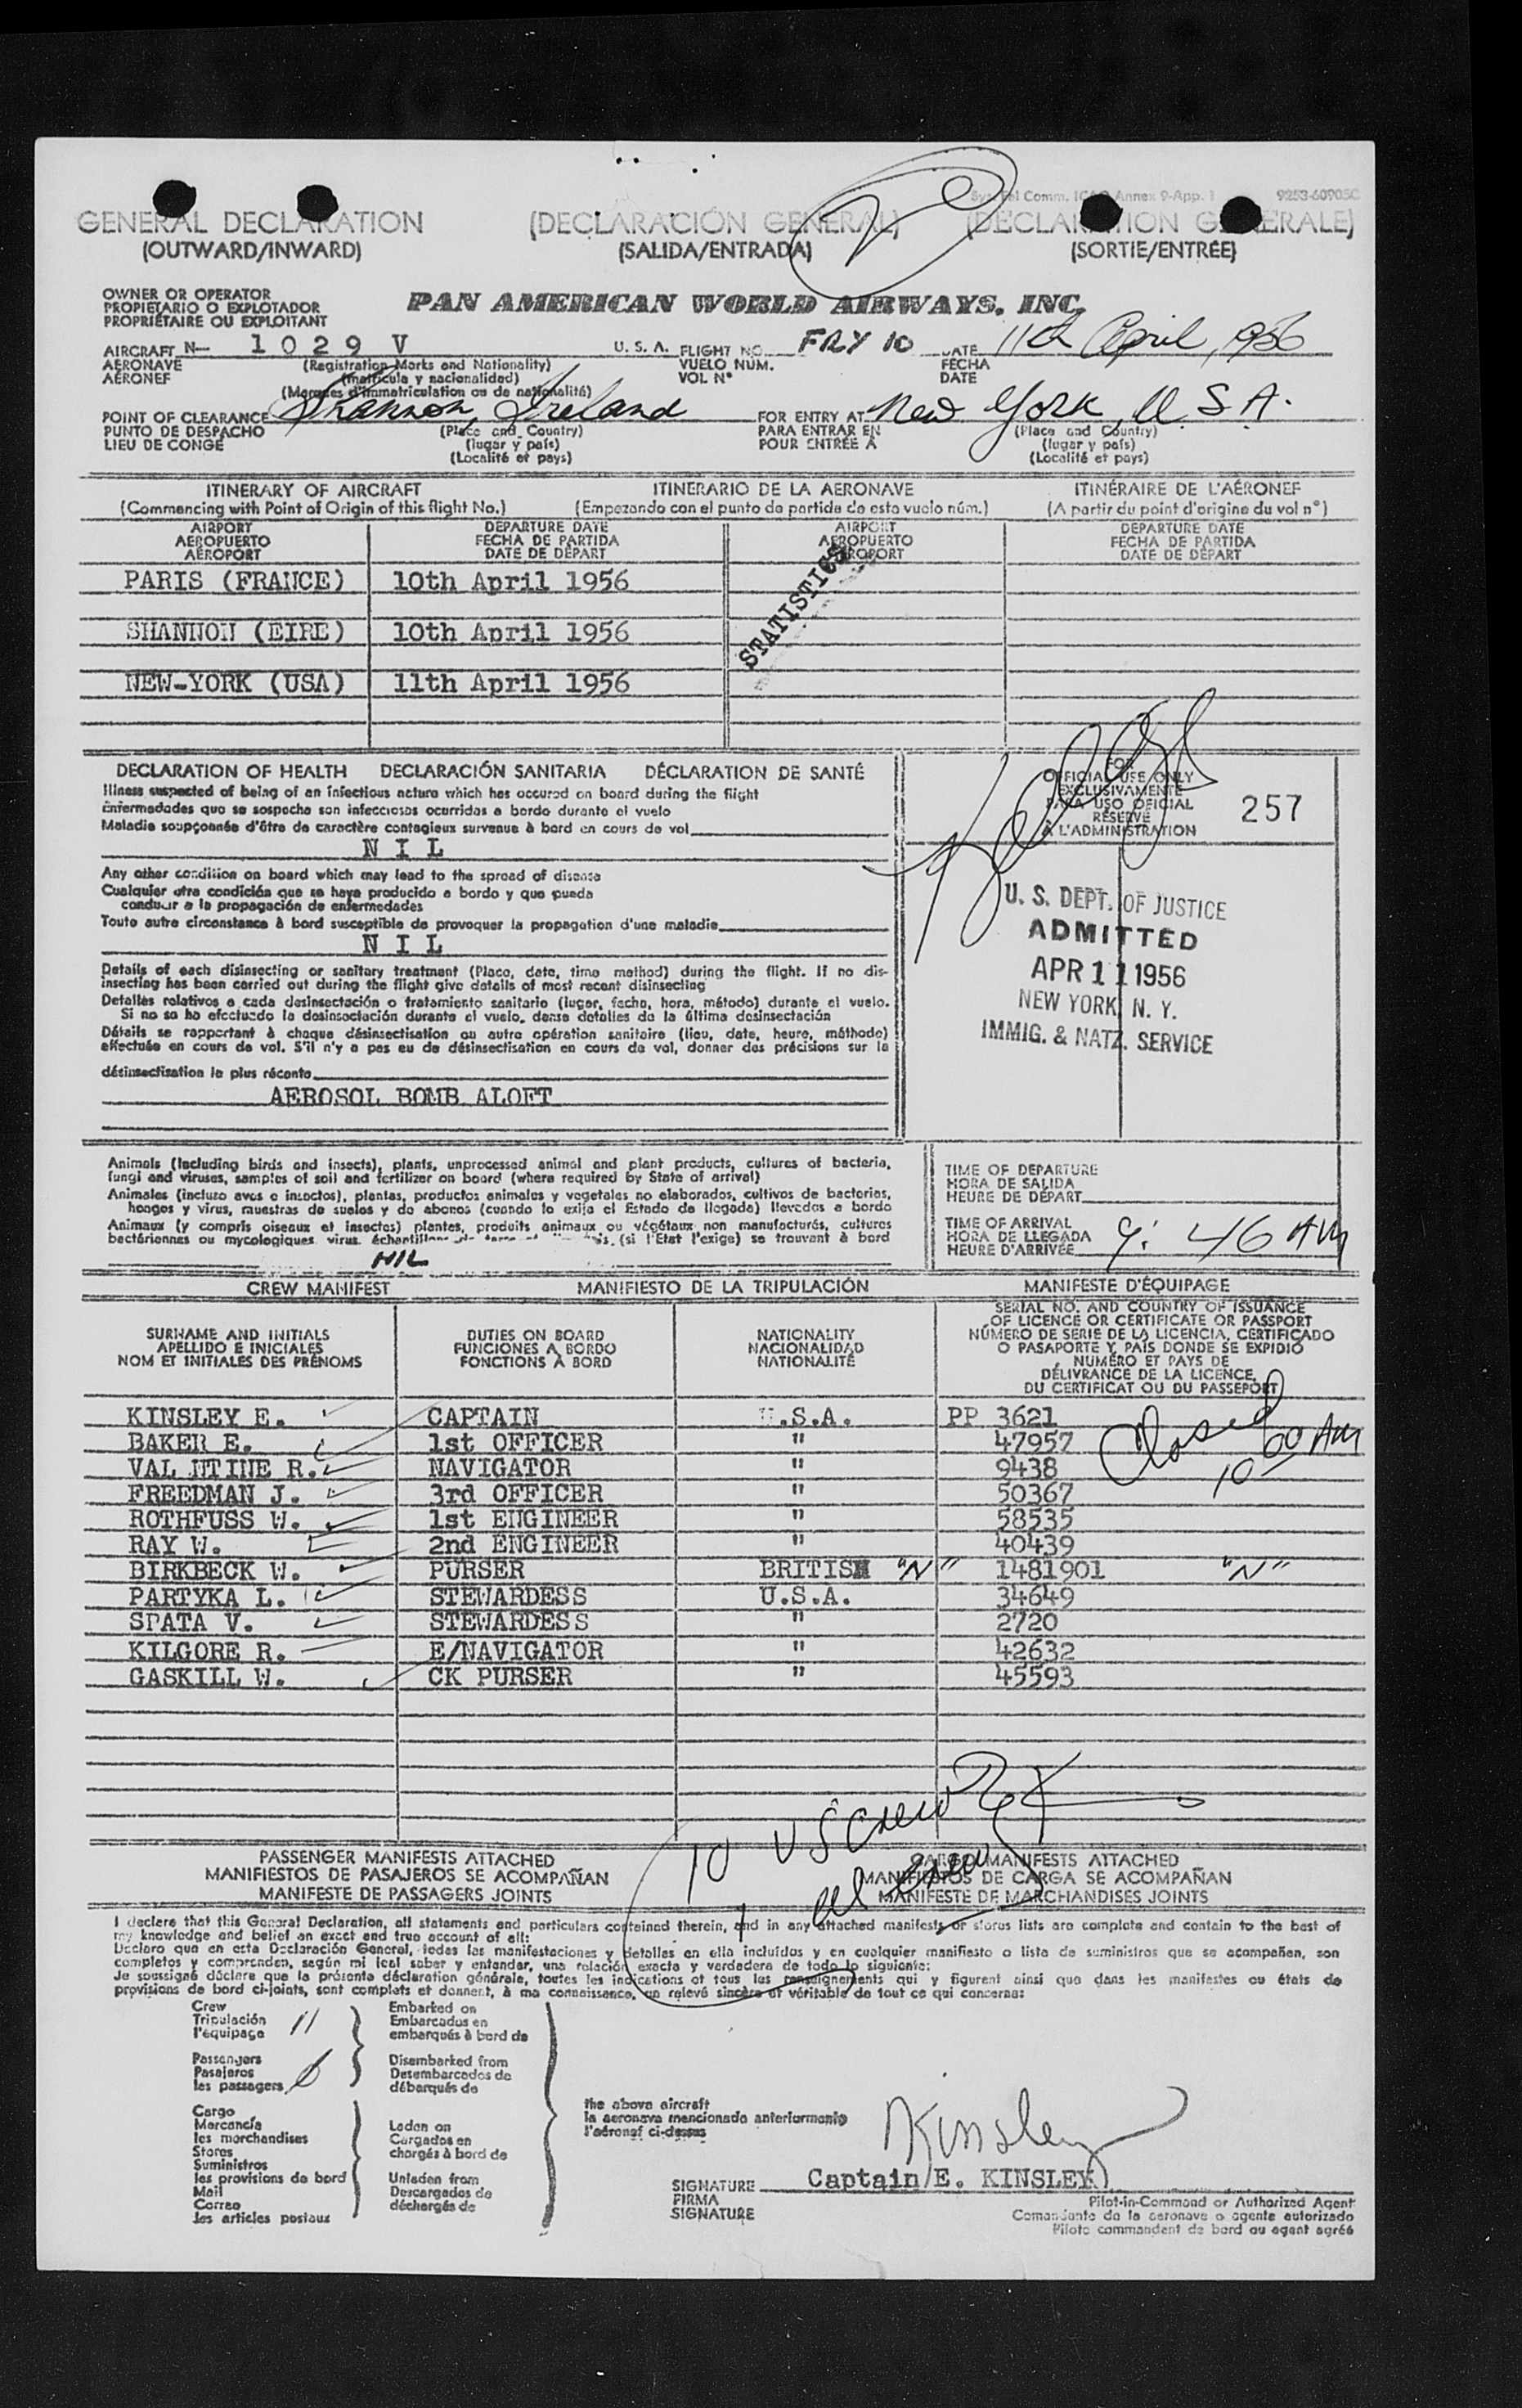 Sys. Tel Comm. ICAO Annex 9-App. 1 9253-60905C
GENERAL DECLARATION (DECLARACIÓN GENERAL) (DÉCLARATION GÉNÉRALE)
(OUTWARD/INWARD) (SALIDA/ENTRADA) (SORTIE/ENTRÉE)
OWNER OR OPERATOR
PROPIETARIO O EXPLOTADOR
PROPRIÉTAIRE OU EXPLOITANT
PAN AMERICAN WORLD AIRWAYS, INC.
AIRCRAFT N- 1029 V U.S.A. FLIGHT NO. FRY 10 DATE 11th April, 1956
AERONAVE (Registration Marks and Nationality) VUELO NUM. FECHA
AÉRONEF (matrícula y nacionalidad) VOL N° DATE
(Marques d'immatriculation ou de nationalité)
POINT OF CLEARANCE Shannon, Ireland FOR ENTRY AT New York, U.S.A.
PUNTO DE DESPACHO (Place and Country) PARA ENTRAR EN (Place and Country)
LIEU DE CONGÉ (lugar y país) POUR ENTRÉE À (lugar y país)
(Localité et pays) (Localité et pays)
ITINERARY OF AIRCRAFT ITINERARIO DE LA AERONAVE ITINÉRAIRE DE L'AÉRONEF
(Commencing with Point of Origin of this flight No.) (Empezando con el punto de partida de esto vuelo núm.) (A partir du point d'origine du vol n°)
AIRPORT DEPARTURE DATE AIRPORT DEPARTURE DATE
AEROPUERTO FECHA DE PARTIDA AEROPUERTO FECHA DE PARTIDA
AÉROPORT DATE DE DÉPART AÉROPORT DATE DE DÉPART
PARIS (FRANCE) 10th April 1956
STATISTICS
SHANNON (EIRE) 10th April 1956
NEW-YORK (USA) 11th April 1956
DECLARATION OF HEALTH DECLARACIÓN SANITARIA DÉCLARATION DE SANTÉ
Illness suspected of being of an infectious nature which has occured on board during the flight
Enfermedades que se sospecha son infecciosas ocurridas a bordo durante el vuelo
Maladie soupçonnée d'être de caractère contagieux survenue à bord en cours de vol
NIL
Any other condition on board which may lead to the spread of disease
Cualquier otra condición que se haya producido a bordo y que pueda
conducir a la propagación de enfermedades
Toute autre circonstance à bord susceptible de provoquer la propagation d'une maladie
NIL
Details of each disinsecting or sanitary treatment (Place, date, time method) during the flight. If no dis-
insecting has been carried out during the flight give details of most recent disinsecting
Detalles relativos a cada desinsectación o tratamiento sanitario (lugar, fecha, hora, método) durante el vuelo.
Si no se ha efectuado la desinsectación durante el vuelo, dense detalles de la última desinsectación
Détails se rapportant à chaque désinsectisation ou autre opération sanitaire (lieu, date, heure, méthode)
effectuée en cours de vol. S'il n'y a pas eu de désinsectisation en cours de vol, donner des précisions sur la
désinsectisation la plus récente
AEROSOL BOMB ALOFT
FOR
OFFICIAL USE ONLY
EXCLUSIVAMENTE
PARA USO OFICIAL
RÉSERVÉ
À L'ADMINISTRATION
257
U. S. DEPT. OF JUSTICE
ADMITTED
APR 11 1956
NEW YORK, N. Y.
IMMIG. & NATZ. SERVICE
Animals (including birds and insects), plants, unprocessed animal and plant products, cultures of bacteria,
fungi and viruses, samples of soil and fertilizer on board (where required by State of arrival)
Animales (incluso aves e insectos), plantas, productos animales y vegetales no elaborados, cultivos de bacterias,
hongos y virus, muestras de suelos y de abonos (cuando lo exija el Estado de llegada) llevados a bordo
Animaux (y compris oiseaux et insectes) plantes, produits animaux ou végétaux non manufacturés, cultures
bactériennes ou mycologiques virus, échantillons (si l'Etat l'exige) se trouvant à bord
NIL
TIME OF DEPARTURE
HORA DE SALIDA
HEURE DE DÉPART
TIME OF ARRIVAL
HORA DE LLEGADA
HEURE D'ARRIVÉE
9:46 AM
CREW MANIFEST MANIFIESTO DE LA TRIPULACIÓN MANIFESTE D'ÉQUIPAGE
SURNAME AND INITIALS
APELLIDO E INICIALES
NOM ET INITIALES DES PRÉNOMS
DUTIES ON BOARD
FUNCIONES A BORDO
FONCTIONS À BORD
NATIONALITY
NACIONALIDAD
NATIONALITÉ
SERIAL NO. AND COUNTRY OF ISSUANCE
OF LICENCE OR CERTIFICATE OR PASSPORT
NÚMERO DE SERIE DE LA LICENCIA, CERTIFICADO
O PASAPORTE Y PAÍS DONDE SE EXPIDIÓ
NUMÉRO ET PAYS DE
DÉLIVRANCE DE LA LICENCE,
DU CERTIFICAT OU DU PASSEPORT
KINSLEY E. CAPTAIN U.S.A. PP 3621
BAKER E. 1st OFFICER " 47957
VAL NTINE R. NAVIGATOR " 9438
FREEDMAN J. 3rd OFFICER " 50367
ROTHFUSS W. 1st ENGINEER " 58535
RAY W. 2nd ENGINEER " 40439
BIRKBECK W. PURSER BRITISH "N" 1481901 "N"
PARTYKA L. STEWARDESS U.S.A. 34649
SPATA V. STEWARDESS " 2720
KILGORE R. E/NAVIGATOR " 42632
GASKILL W. CK PURSER " 45593
Closed
10 00 AM
10 US Crew
1 al crew
PASSENGER MANIFESTS ATTACHED CARGO MANIFESTS ATTACHED
MANIFIESTOS DE PASAJEROS SE ACOMPAÑAN MANIFIESTOS DE CARGA SE ACOMPAÑAN
MANIFESTE DE PASSAGERS JOINTS MANIFESTE DE MARCHANDISES JOINTS
I declare that this General Declaration, all statements and particulars contained therein, and in any attached manifests or stores lists are complete and contain to the best of
my knowledge and belief an exact and true account of all:
Declaro que en esta Declaración General, todas las manifestaciones y detalles en ella incluídos y en cualquier manifiesto o lista de suministros que se acompañan, son
completos y comprenden, según mi leal saber y entender, una relación exacta y verdadera de todo lo siguiente:
Je soussigné déclare que la présente déclaration générale, toutes les indications et tous les renseignements qui y figurent ainsi que dans les manifestes ou états de
provisions de bord ci-joints, sont complets et donnent, à ma connaissance, un relevé sincère et véritable de tout ce qui concerne:
Crew
Tripulación
l'équipage
11
Embarked on
Embarcados en
embarqués à bord de
Passengers
Pasajeros
les passagers
Disembarked from
Desembarcados de
débarqués de
Cargo
Mercancía
les marchandises
Stores
Suministros
les provisions de bord
Mail
Correo
les articles postaux
Laden on
Cargados en
chargés à bord de
Unladen from
Descargados de
déchargés de
the above aircraft
la aeronave mencionada anteriormente
l'aéronef ci-dessus
Kinsley
SIGNATURE Captain E. KINSLEY
FIRMA
SIGNATURE
Pilot-in-Command or Authorized Agent
Comandante de la aeronave o agente autorizado
Pilote commandant de bord ou agent agréé